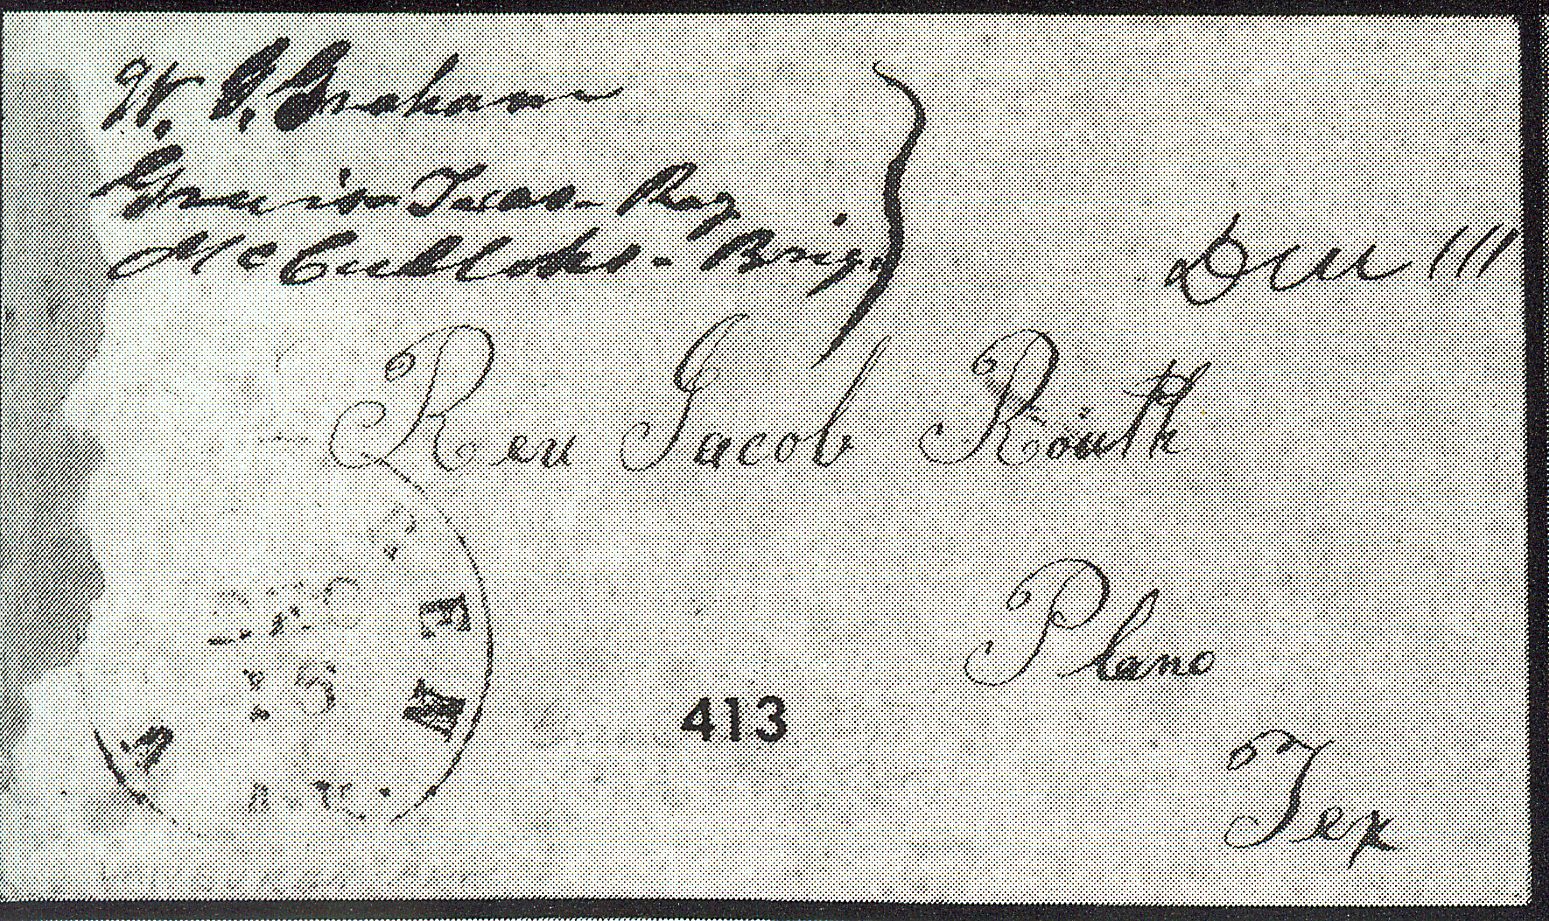 W. G. Graham
Texas Reg
McCullochs - Brig.
Due 111
Rev Jacob Routh
Plano
Tex
DEC
413